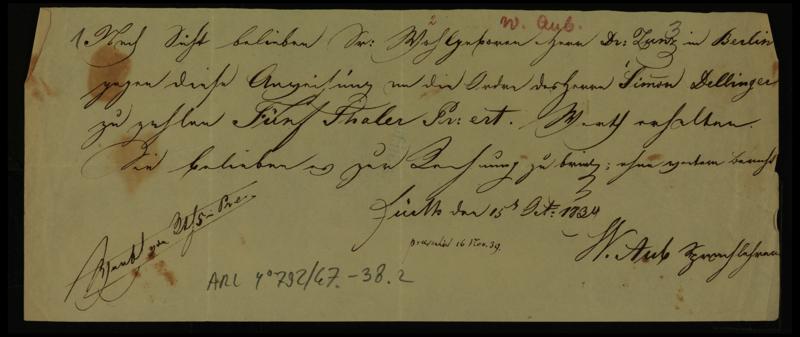 2
W. Aub.
3
Nach Sicht belieben Sr: Wohlgeboren Herr Dr: Zunz in Berlin
gegen diese Anweisung an die Ordre des Herrn Simon Dellinger
zu zahlen Fünf Thaler Pr: Crt. Werth erhalten.
Sie belieben es zur Rechnung zu bring; ohne weitern Bericht
Fürth den 15t Oct. 1834
W. Aub Sprachlehrer
16 Nov. 39.
ARC 4° 792/Z7.-38.2